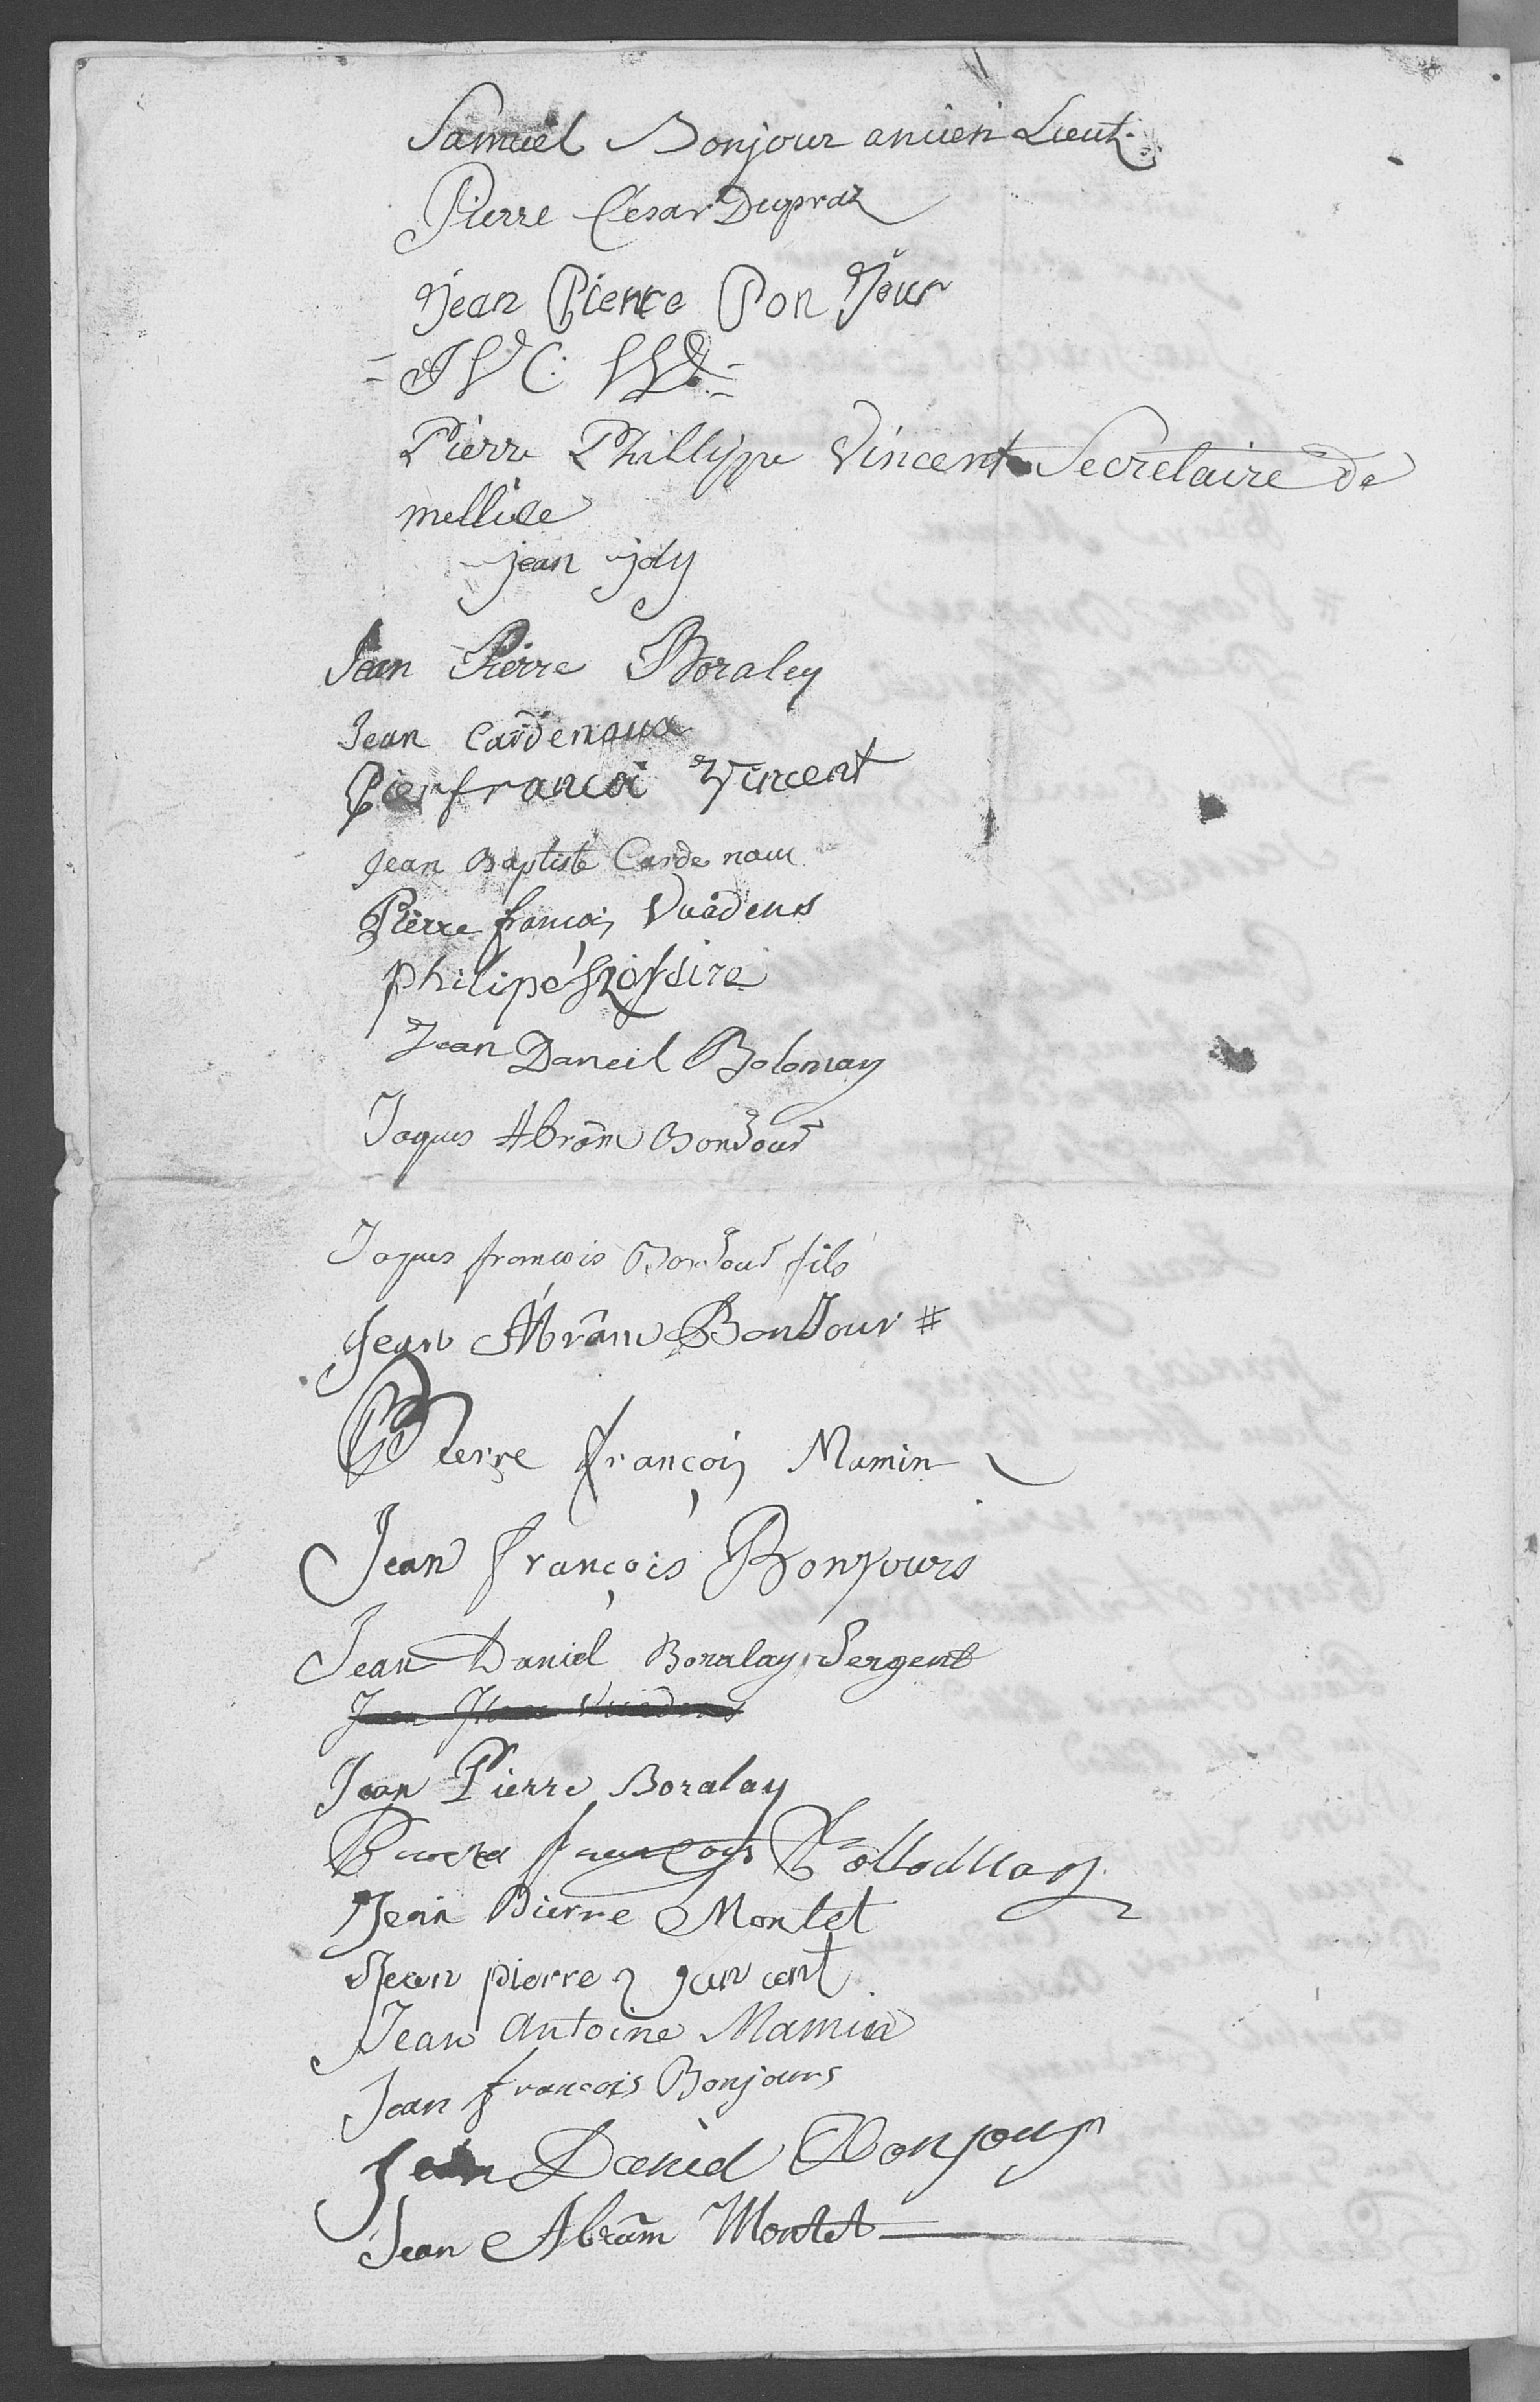 Samuel Bonjour ancien Lieut.
Pierre César Dupraz
Jean Pierre Bon Jour
Pierre Phillippe Vincent Secretaire de
mellice
jean joly
Jean Pierre Boraley
Jean Cardenaux
Pierfrancoi Vincent
Jean Baptiste Cardenau
Pierre francois Vuadens
philipe
Jean Daneil Bolomay
Jaques Abram BonJour
Jaques francois BonJour fils
Jean Abram BonJour #
Pierre françois Mamin
Jean françois Bonjours
Jean Daniel Boralay Sergent
Jean Vuadens
Jean Pierre Boralay
Pierre françois
Jean Pierre Montet
Jean pierre
Jean Antoine Mamin
Jean francois Bonjours
Jean Daniel Bonjour
Jean Abram Montet